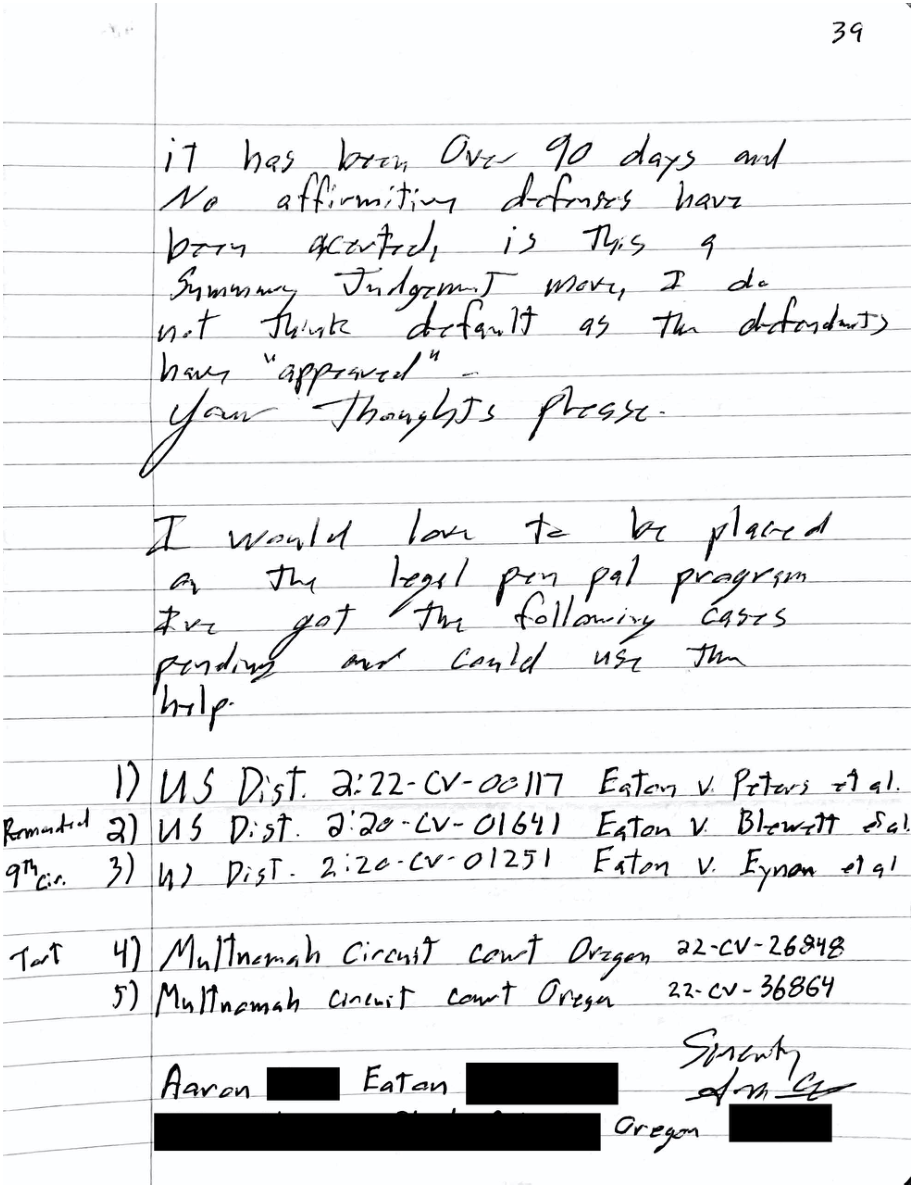 39
it has been Over 90 days and
No affirmitivy defenses have
been accerted, is This a
Summary Judgement move, I do
not Think default as The defendants
have "appeared" -
Your Thoughts please.
I would love to be placed
on The legal pen pal program
I've got The following cases
pending and could use The
help.
1) US Dist. 2:22-CV-00117 Eaton v. Peters et al.
Remanded 2) US Dist. 2:20-CV-01641 Eaton v. Blewett et al
9th Cir. 3) US Dist. 2:20-CV-01251 Eaton v. Eynon et al
Tort 4) Multnomah Circuit court Oregon 22-CV-26848
5) Multnomah circuit court Oregon 22-CV-36864
Sincerely
Aaron Eaton
Oregon